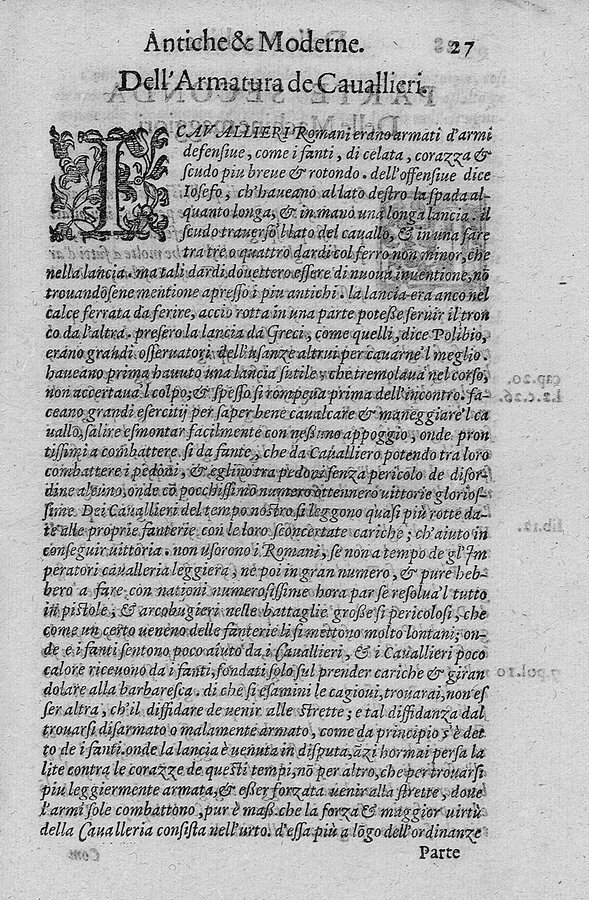 Antiche & Moderne. 27
Dell'Armatura de Cauallieri.
I CAVALLIERI Romani erano armati d'armi
defensiue, come i fanti, di celata, corazza &
scudo piu breue & rotondo. dell'offensiue dice
Iosefo, ch'haueano al lato destro la spada al-
quanto longa, & in mano una longa lancia. il
scudo trauerso'l lato del cauallo, & in una fare
tra tre o quattro dardi col ferro non minor, che
nella lancia. ma tali dardi douettero essere di nuoua inuentione, nõ
trouandosene mentione apresso i piu antichi. la lancia era anco nel
calce ferrata da ferire, acciò rotta in una parte potesse seruir il tron
co da l'altra. presero la lancia da Greci, come quelli, dice Polibio,
erano grandi osseruatori dell'usanze altrui per cauarne'l meglio.
haueano prima hauuto una lancia sutile, che tremolaua nel corso,
non accertaua'l colpo; & spesso si rompeua prima dell'incontro. fa-
ceano grandi esercitij per saper bene caualcare & maneggiare'l ca
uallo, salire e smontar facilmente con nessuno appoggio, onde pron
tissimi a combattere si da fante, che da Caualliero potendo tra loro
combattere i pedoni, & eglino tra pedoni senza pericolo de disor-
dine alcuno, onde cõ pocchissimo numero ottennero uittorie glorios-
sime. Dei Cauallieri del tempo nostro si leggono quasi più rotte da-
te alle proprie fanterie con le loro sconcertate cariche; ch'aiuto in
conseguir uittoria. non usorono i Romani, se non a tempo de gl'Im
peratori caualleria leggiera, ne poi in gran numero, & pure heb-
bero a fare con nationi numerosissime hora par se resolua'l tutto
in pistole, & arcobugieri nelle battaglie grosse si pericolosi, che
come un certo ueneno delle fanterie li si mettono molto lontani; on-
de e i fanti sentono poco aiuto da i Cauallieri, & i Cauallieri poco
calore riceuono da i fanti, fondati solo sul prender cariche & giran
dolare alla barbaresca. di che si esamini le cagioni, trouarai, non es
ser altra, ch'il diffidare de uenir alle strette; e tal diffidanza dal
trouarsi disarmato o malamente armato, come da principio s'è det
to de i fanti. onde la lancia è uenuta in disputa, ãzi hormai persa la
lite contra le corazze de questi tempi, nõ per altro, che per trouarsi
piu leggiermente armata, & esser forzata uenir alla strette, doue
l'armi sole combattono, pur è mass. che la forza & maggior uirtù
della Caualleria consista nell'urto. d'essa più a lõgo dell'ordinanze
Parte